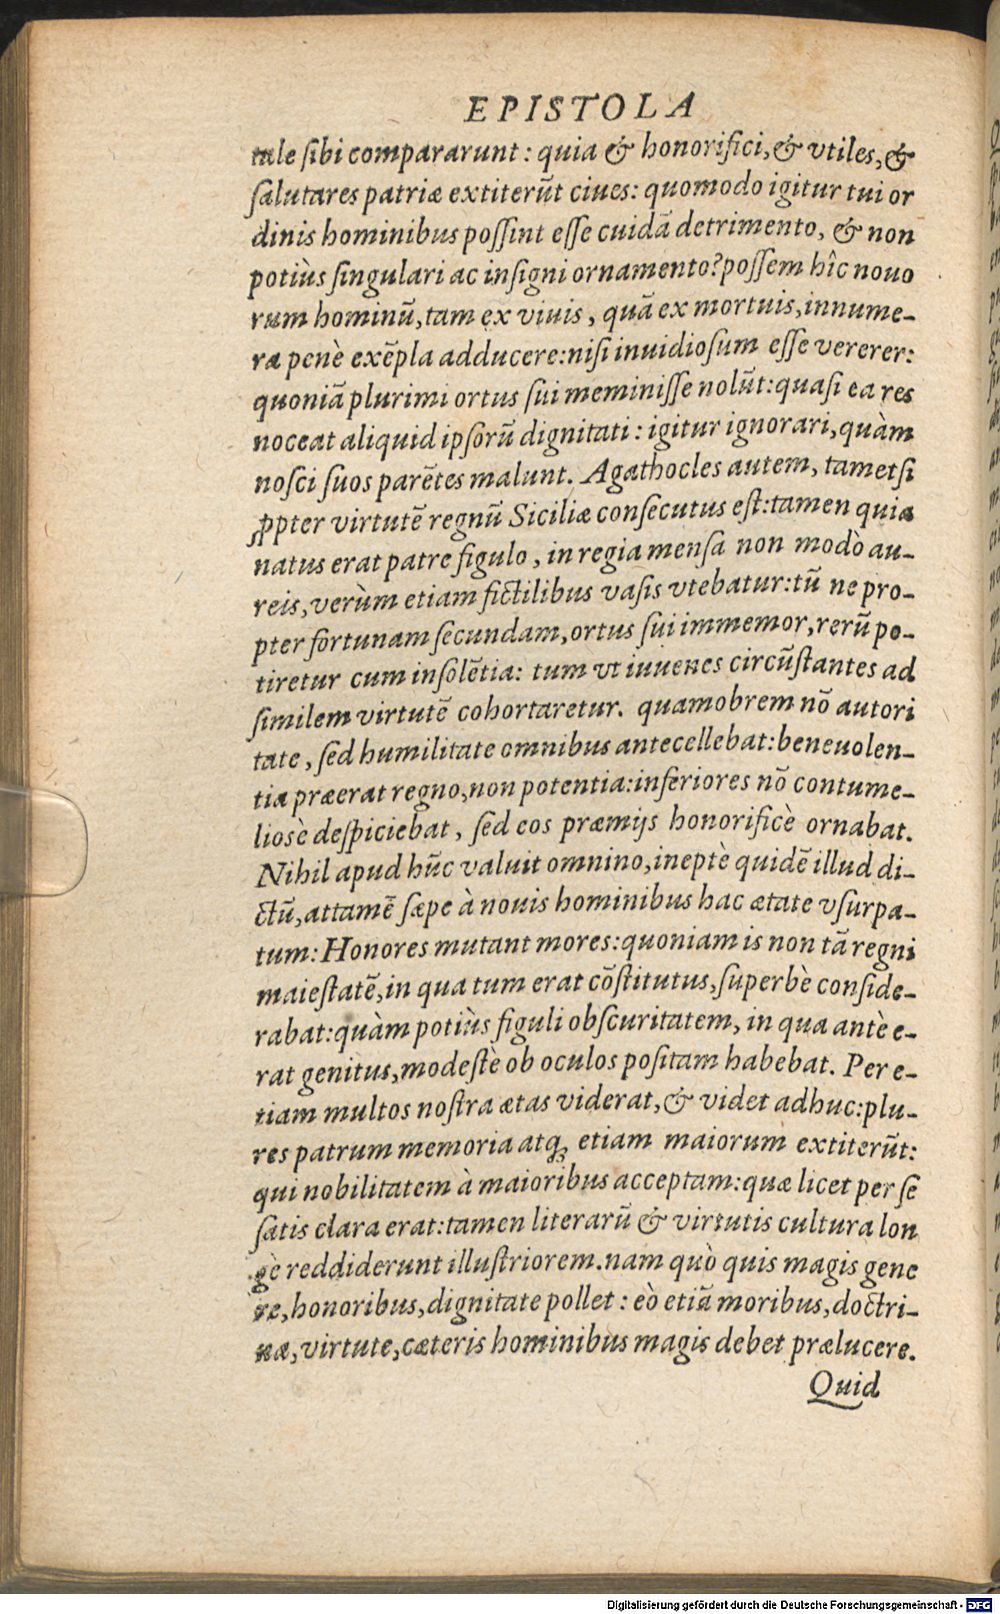 EPISTOLA
tale sibi compararunt: quia & honorifici, & vtiles, &
salutares patriæ extiterūt ciues: quomodo igitur tui or
dinis hominibus possint esse cuidā detrimento, & non
potiùs singulari ac insigni ornamento? possem hîc nouo
rum hominū, tam ex viuis, quā ex mortuis, innume-
ra penè exēpla adducere: nisi inuidiosum esse vererer:
quoniā plurimi ortus sui meminisse nolūt: quasi ea res
noceat aliquid ipsorū dignitati: igitur ignorari, quàm
nosci suos parētes malunt. Agathocles autem, tametsi
ꝓpter virtutē regnū Siciliæ consecutus est: tamen quia
natus erat patre figulo, in regia mensa non modò au-
reis, verùm etiam fictilibus vasis vtebatur: tū ne pro-
pter fortunam secundam, ortus sui immemor, rerū po-
tiretur cum insolētia: tum vt iuuenes circūstantes ad
similem virtutē cohortaretur. quamobrem nō autori
tate, sed humilitate omnibus antecellebat: beneuolen-
tia præerat regno, non potentia: inferiores nō contume-
liosè despiciebat, sed eos præmijs honorificè ornabat.
Nihil apud hūc valuit omnino, ineptè quidē illud di-
ctū, attamē sæpe à nouis hominibus hac ætate vsurpa-
tum: Honores mutant mores: quoniam is non tā regni
maiestatē, in qua tum erat cōstitutus, superbè conside-
rabat: quàm potiùs figuli obscuritatem, in qua antè e-
rat genitus, modestè ob oculos positam habebat. Per e-
tiam multos nostra ætas viderat, & videt adhuc: plu-
res patrum memoria atq; etiam maiorum extiterūt:
qui nobilitatem à maioribus acceptam: quæ licet per se
satis clara erat: tamen literarū & virtutis cultura lon
gè reddiderunt illustriorem. nam quò quis magis gene
re, honoribus, dignitate pollet: eò etiā moribus, doctri-
na, virtute, cæteris hominibus magis debet prælucere.
Quid
Digitalisierung gefördert durch die Deutsche Forschungsgemeinschaft - DFG